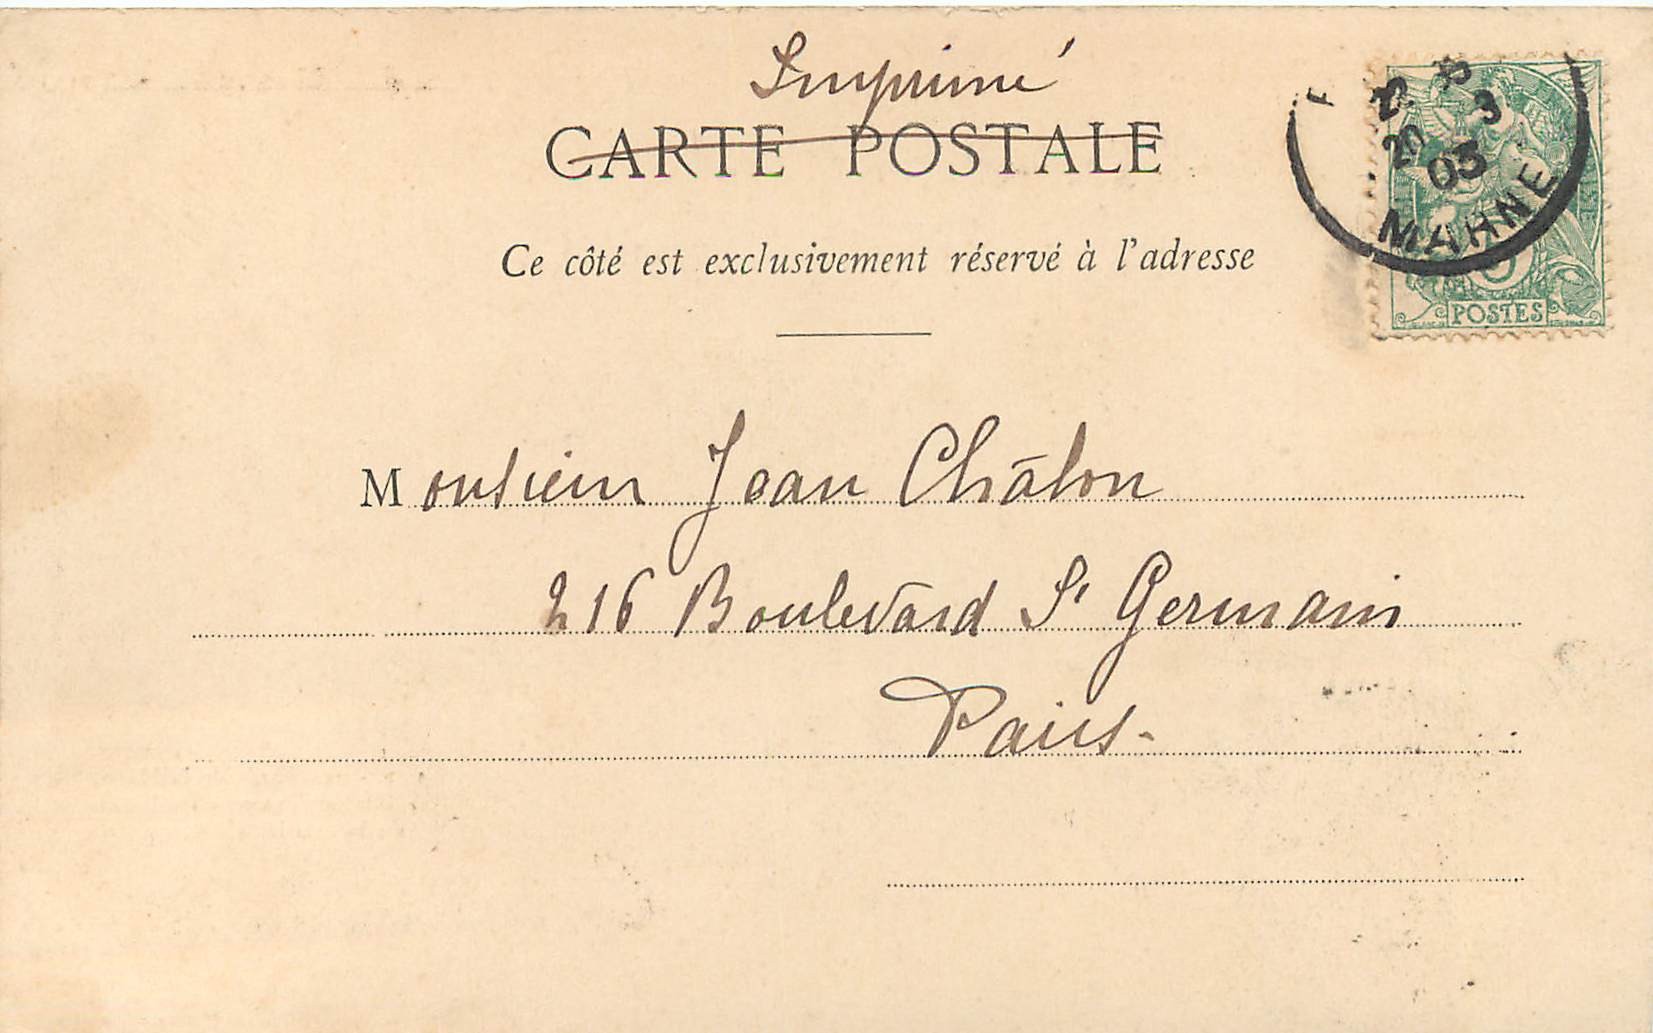 Imprimé
CARTE POSTALE
Ce côté est exclusivement réservé à l'adresse
20 3
03
MARNE
5
POSTES
Monsieur Jean Châlon
216 Boulevard St Germain
Paris-